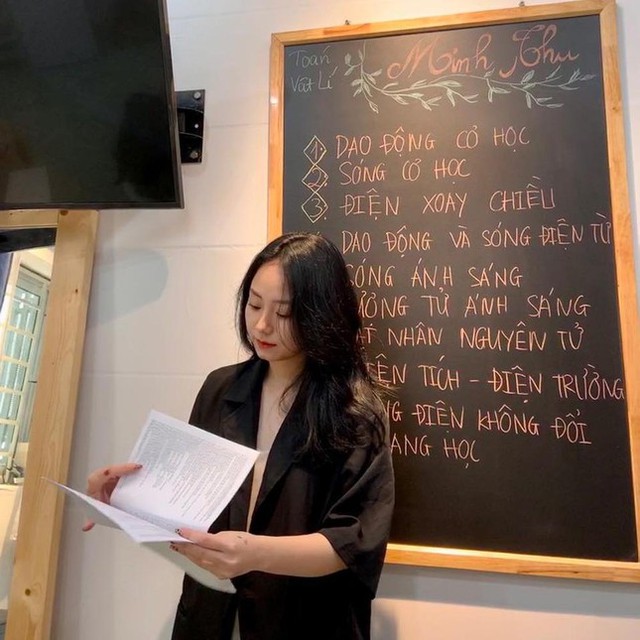 Toán
Vật Lí
Minh Thu
1 DAO ĐỘNG CƠ HỌC
2 SÓNG CƠ HỌC
3 ĐIỆN XOAY CHIỀU
DAO ĐỘNG VÀ SÓNG ĐIỆN TỪ
SÓNG ÁNH SÁNG
ƯỢNG TỬ ÁNH SÁNG
NHÂN NGUYÊN TỬ
IỆN TÍCH - ĐIỆN TRƯỜNG
NG ĐIỆN KHÔNG ĐỔI
ANG HỌC